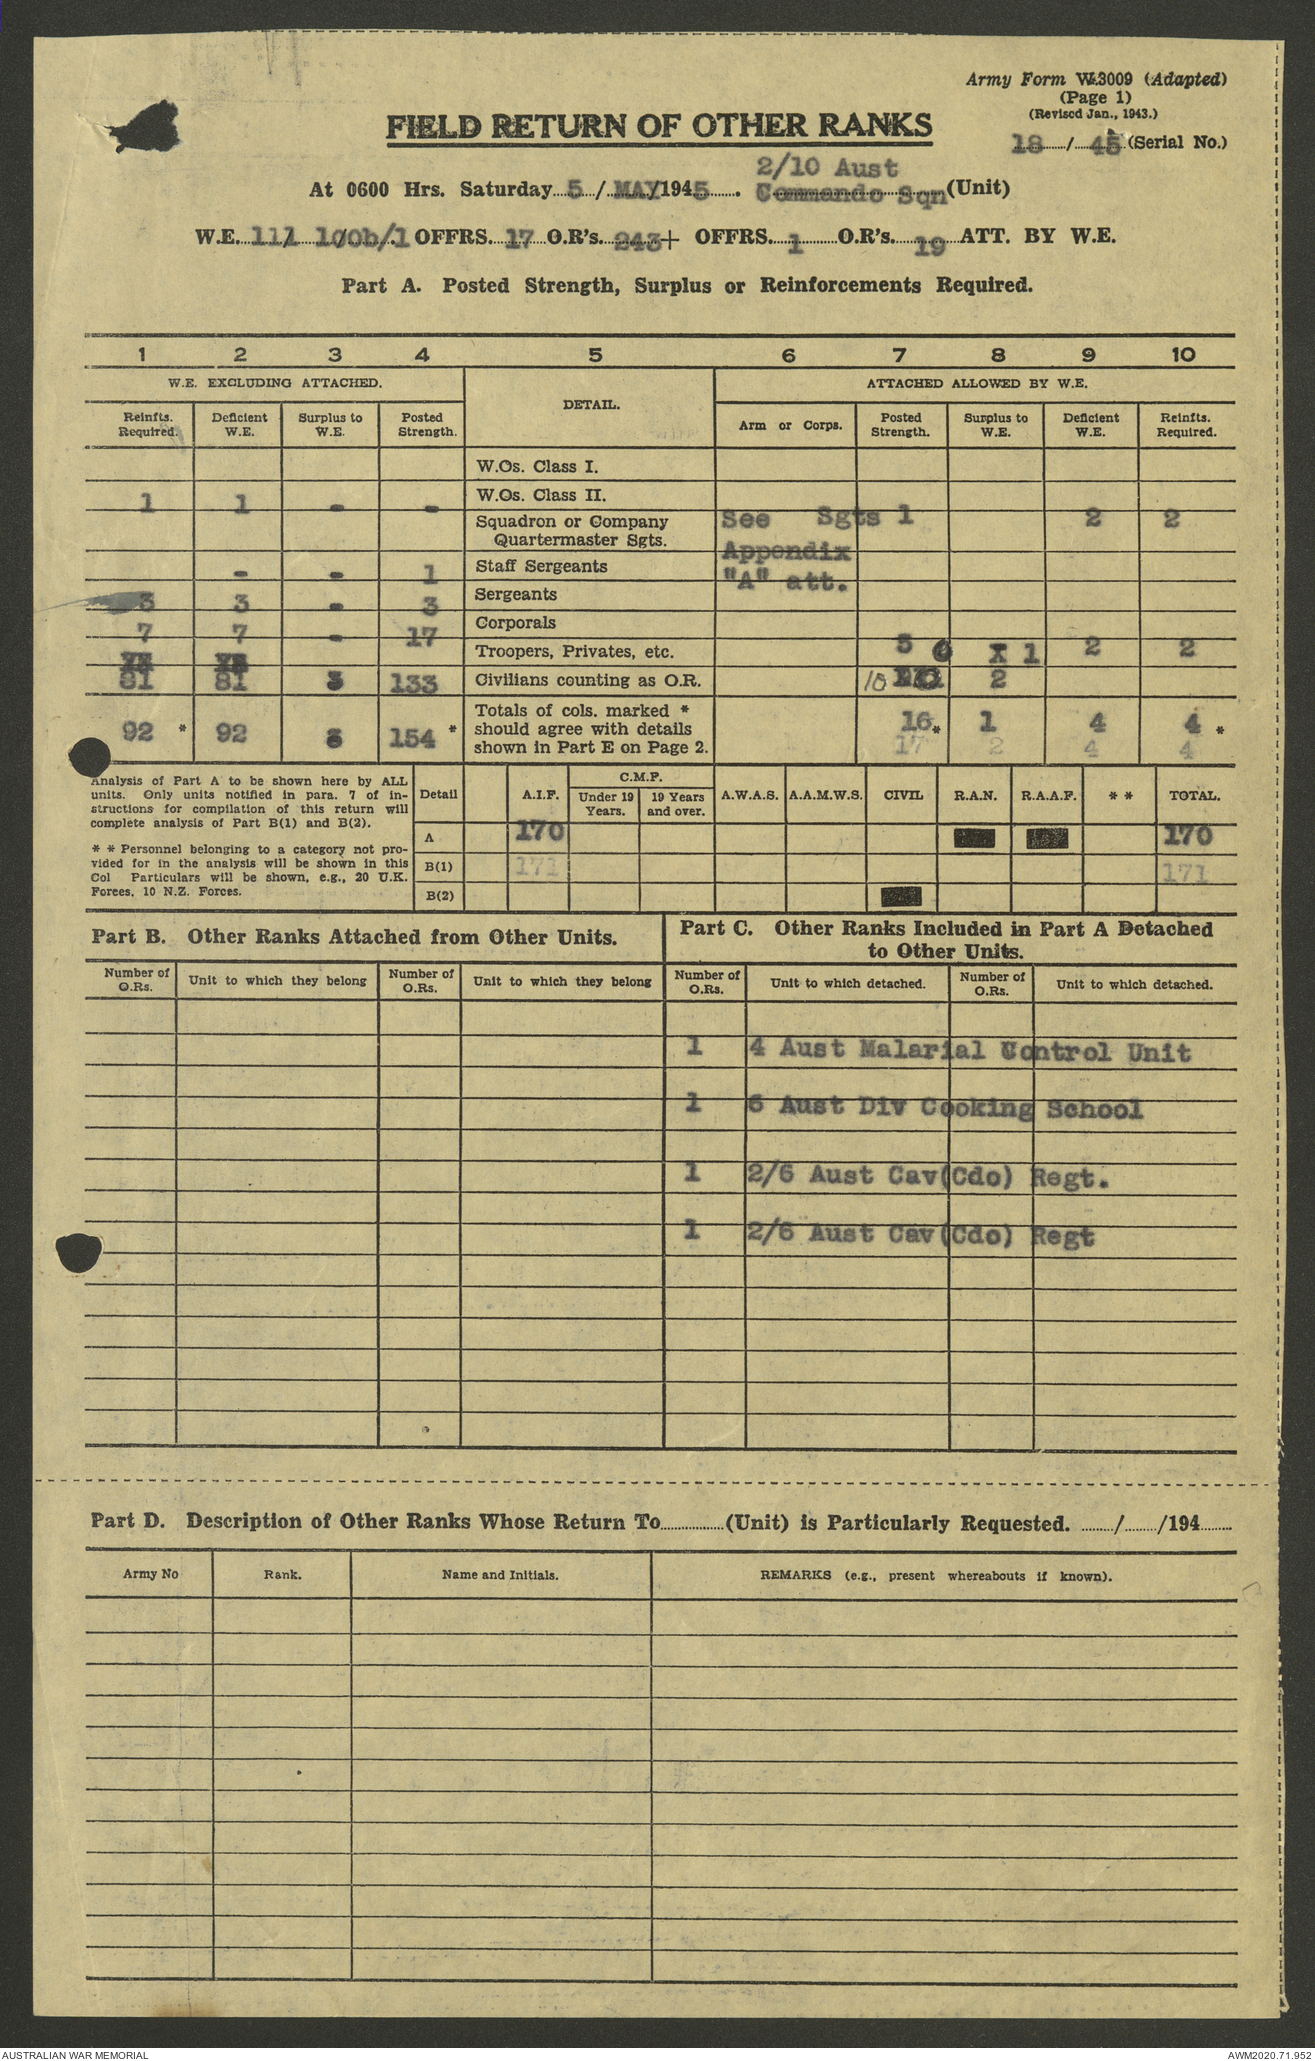 Army Form W.3009 (Adapted)
(Page 1)
(Revised Jan., 1943.)
18 / 45 (Serial No.)
FIELD RETURN OF OTHER RANKS
2/10 Aust
At 0600 Hrs. Saturday 5 / MAY/1945 . Commando Sqn (Unit)
W.E. 111/ 1/00b/1 OFFRS. 17 O.R's. 243+ OFFRS. 1 O.R's. 19 ATT. BY W.E.
Part A. Posted Strength, Surplus or Reinforcements Required.
1 2 3 4 5 6 7 8 9 10
W.E. EXCLUDING ATTACHED. DETAIL. ATTACHED ALLOWED BY W.E.
Reinfts. Required. Deficient W.E. Surplus to W.E. Posted Strength. Arm or Corps. Posted Strength. Surplus to W.E. Deficient W.E. Reinfts. Required.
W.Os. Class I.
1 1 - - W.Os. Class II.
Squadron or Company See Sgts 1 2 2
Quartermaster Sgts. Appendix
- - 1 Staff Sergeants "A" att.
3 3 - 3 Sergeants
7 7 - 17 Corporals
Troopers, Privates, etc. 5 1 2 2
81 81 133 Civilians counting as O.R. 10 2
92 * 92 154 * Totals of cols. marked * 16* 1 4 4 *
should agree with details
shown in Part E on Page 2. 17 2 4 4
Analysis of Part A to be shown here by ALL
units. Only units notified in para. 7 of in-
structions for compilation of this return will
complete analysis of Part B(1) and B(2).
* * Personnel belonging to a category not pro-
vided for in the analysis will be shown in this
Col Particulars will be shown, e.g., 20 U.K.
Forces, 10 N.Z. Forces.
Detail A.I.F. C.M.F. A.W.A.S. A.A.M.W.S. CIVIL R.A.N. R.A.A.F. * * TOTAL.
Under 19 Years. 19 Years and over.
A 170 170
B(1) 171 171
B(2)
Part B. Other Ranks Attached from Other Units.
Part C. Other Ranks Included in Part A Detached
to Other Units.
Number of O.Rs. Unit to which they belong Number of O.Rs. Unit to which they belong Number of O.Rs. Unit to which detached. Number of O.Rs. Unit to which detached.
1 4 Aust Malarial Control Unit
1 6 Aust Div Cooking School
1 2/6 Aust Cav(Cdo) Regt.
1 2/6 Aust Cav(Cdo) Regt
Part D. Description of Other Ranks Whose Return To (Unit) is Particularly Requested. / /194
Army No Rank. Name and Initials. REMARKS (e.g., present whereabouts if known).
AUSTRALIAN WAR MEMORIAL
AWM2020.71.952